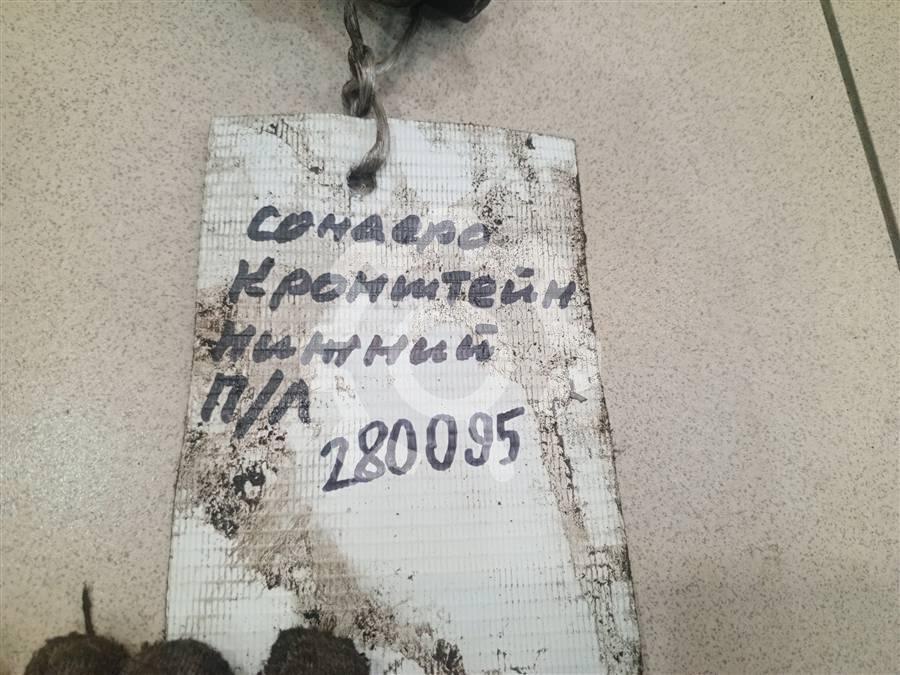 Сандеро
Кронштейн
нижний
П/Л
280095